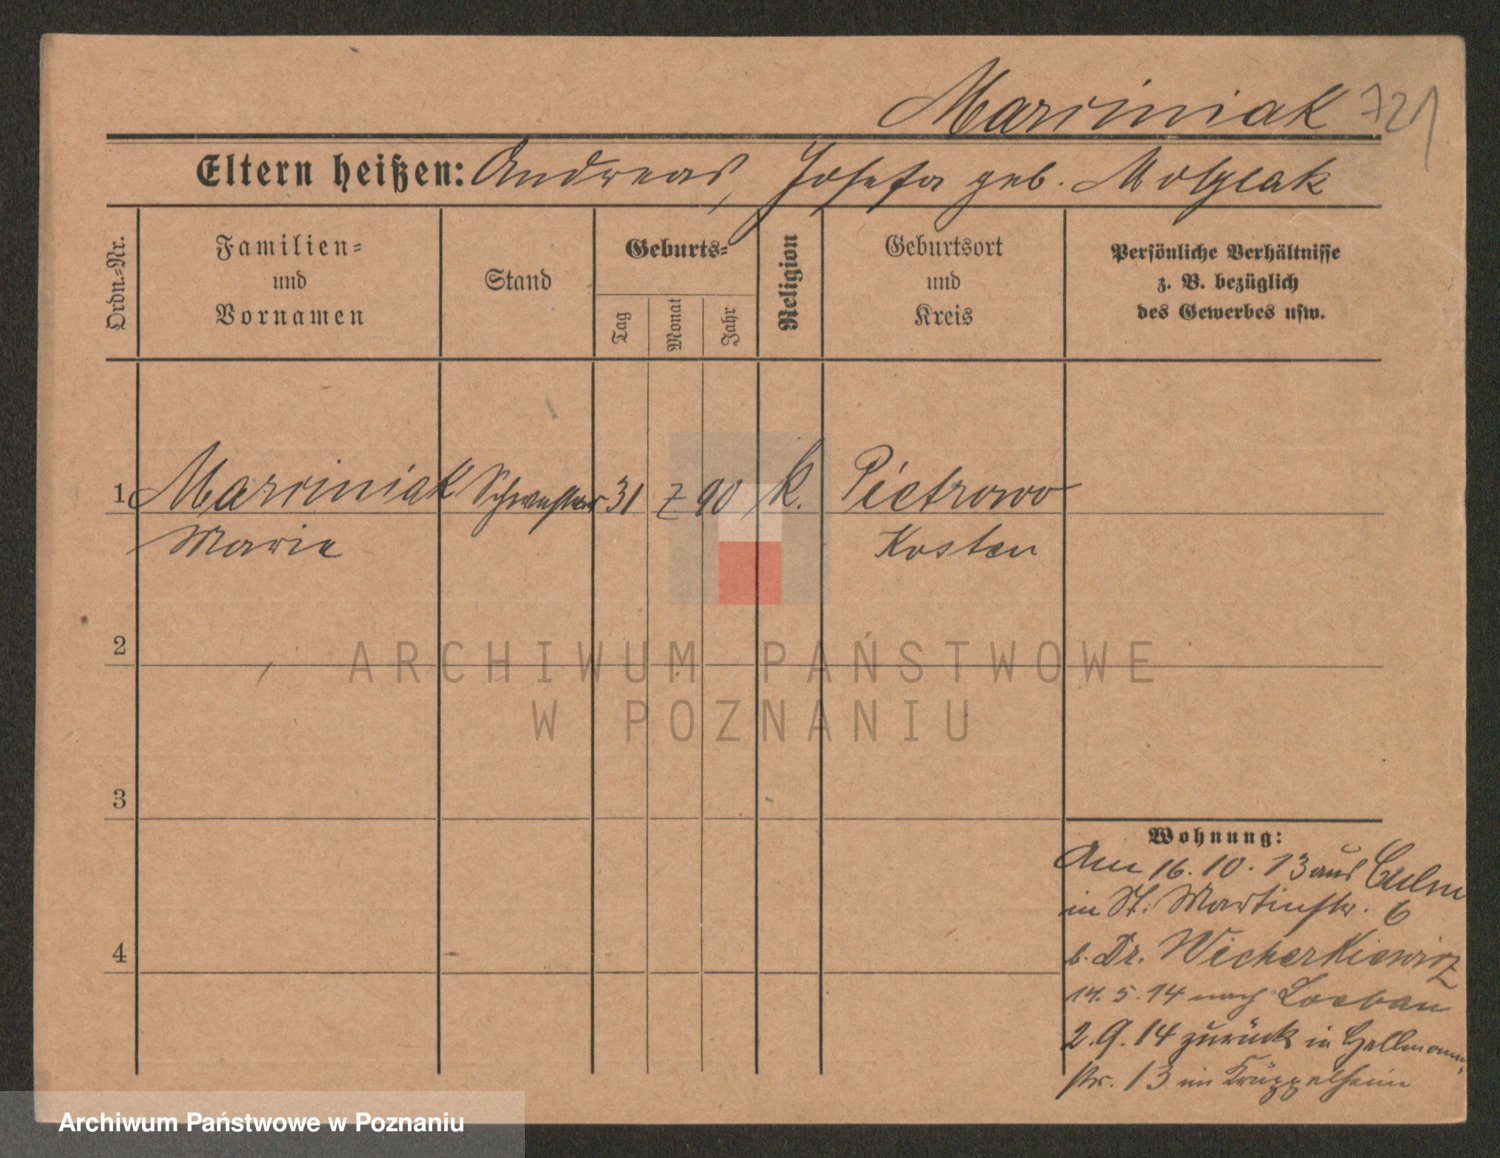 Marciniak 721
Eltern heißen: Andreas, Josefa geb. Molzeak
Ordn.-Nr.
Familien-
und
Vornamen
Stand
Geburts-
Tag
Monat
Jahr
Religion
Geburtsort
und
Kreis
Persönliche Verhältnisse
z. B. bezüglich
des Gewerbes usw.
1 Marciniak Schwester 31 7 90 k. Pietrowo
Marie Kosten
2
ARCHIWUM PAŃSTWOWE
W POZNANIU
3
Wohnung:
Am 16.10.13 aus Culm
in St. Martinstr. 6
b. Dr. Wicherkiewicz
14.5.14 nach Loebau
2.9.14 zurück in Hellmann
str. 13 im Krüppelheim
4
Archiwum Państwowe w Poznaniu